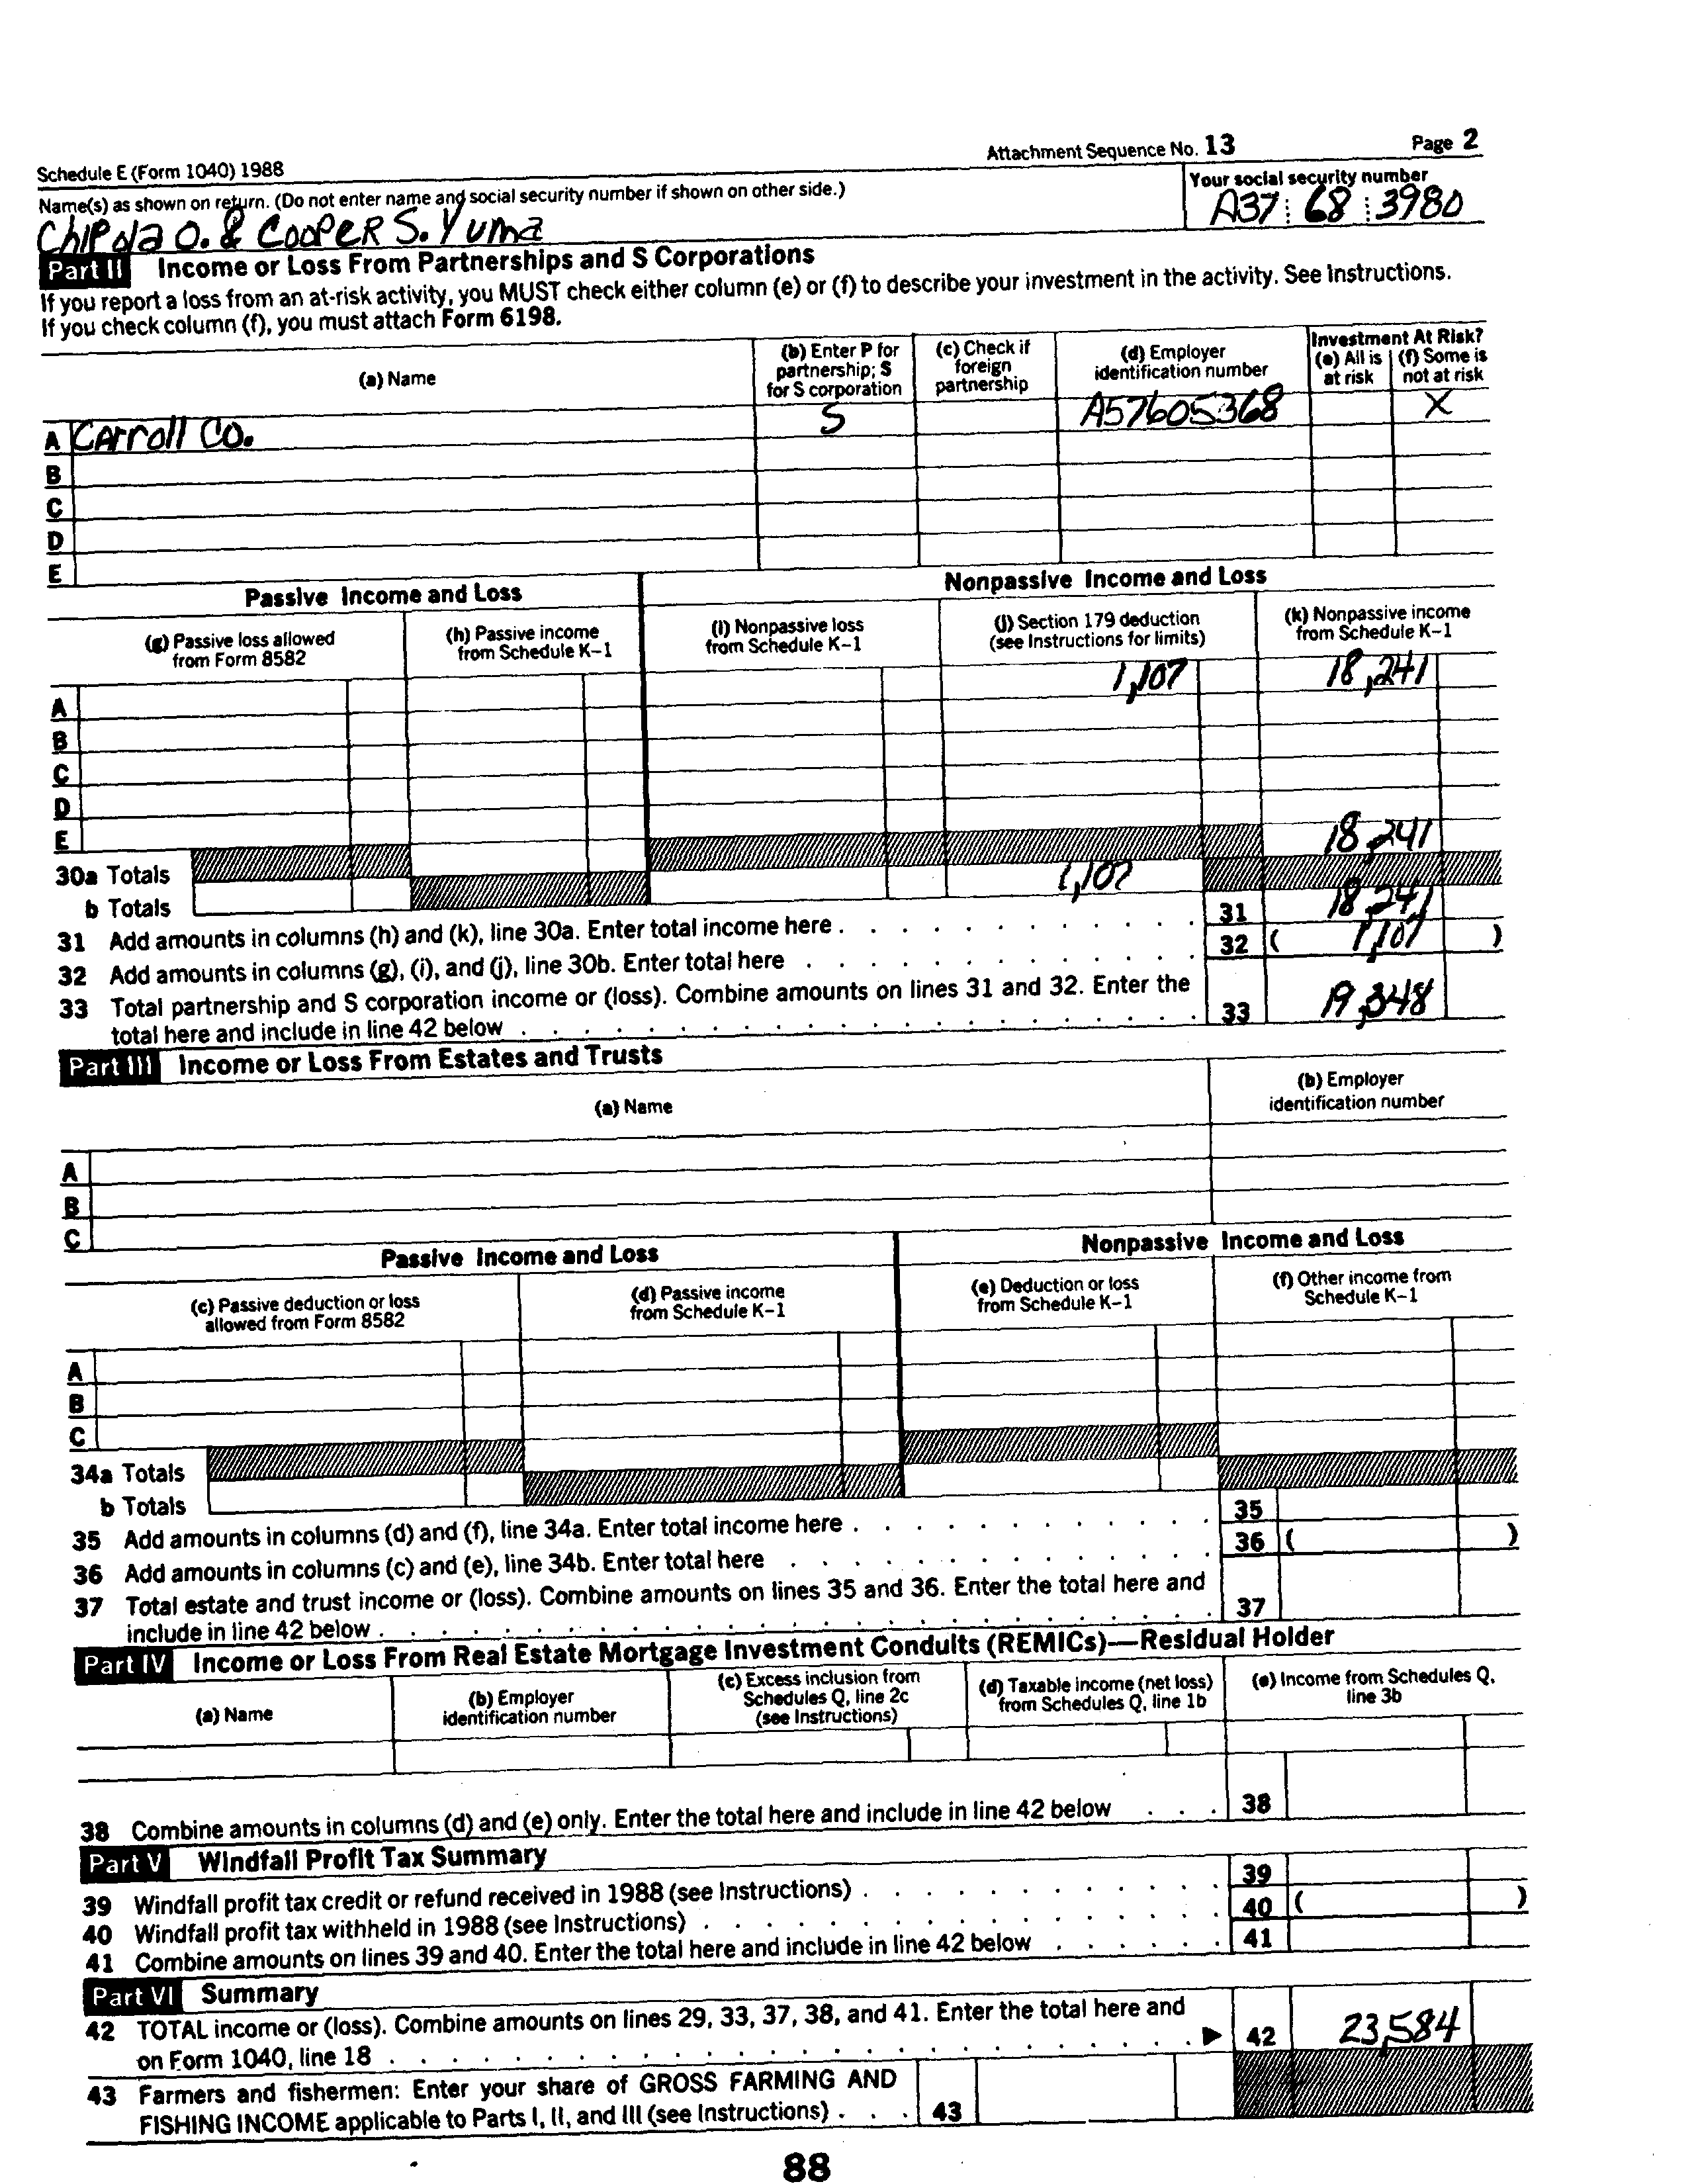 Schedule E (Form 1040) 1988 Attachment Sequence No. 13 Page 2
Name(s) as shown on return. (Do not enter name and social security number if shown on other side.) Your social security number
Chipola O. & Cooper S. Yuma A37 68 3980
Part II Income or Loss From Partnerships and S Corporations
If you report a loss from an at-risk activity, you MUST check either column (e) or (f) to describe your investment in the activity. See Instructions.
If you check column (f), you must attach Form 6198.
(a) Name
(b) Enter P for partnership; S for S corporation
(c) Check if foreign partnership
(d) Employer identification number
Investment At Risk?
(e) All is at risk
(f) Some is not at risk
A Carroll Co. S A57605368 X
B
C
D
E
Passive Income and Loss Nonpassive Income and Loss
(g) Passive loss allowed from Form 8582
(h) Passive income from Schedule K–1
(i) Nonpassive loss from Schedule K–1
(j) Section 179 deduction (see Instructions for limits)
(k) Nonpassive income from Schedule K–1
A 1,107 18,241
B
C
D
E
30a Totals 18,241
b Totals 1,107
31 Add amounts in columns (h) and (k), line 30a. Enter total income here 31 18,241
32 Add amounts in columns (g), (i), and (j), line 30b. Enter total here 32 ( 1,107 )
33 Total partnership and S corporation income or (loss). Combine amounts on lines 31 and 32. Enter the
total here and include in line 42 below 33 19,348
Part III Income or Loss From Estates and Trusts
(a) Name
(b) Employer identification number
A
B
C
Passive Income and Loss Nonpassive Income and Loss
(c) Passive deduction or loss allowed from Form 8582
(d) Passive income from Schedule K–1
(e) Deduction or loss from Schedule K–1
(f) Other income from Schedule K–1
A
B
C
34a Totals
b Totals
35 Add amounts in columns (d) and (f), line 34a. Enter total income here 35
36 Add amounts in columns (c) and (e), line 34b. Enter total here 36 ( )
37 Total estate and trust income or (loss). Combine amounts on lines 35 and 36. Enter the total here and
include in line 42 below 37
Part IV Income or Loss From Real Estate Mortgage Investment Conduits (REMICs)—Residual Holder
(a) Name
(b) Employer identification number
(c) Excess inclusion from Schedules Q, line 2c (see Instructions)
(d) Taxable income (net loss) from Schedules Q, line 1b
(e) Income from Schedules Q, line 3b
38 Combine amounts in columns (d) and (e) only. Enter the total here and include in line 42 below 38
Part V Windfall Profit Tax Summary
39 Windfall profit tax credit or refund received in 1988 (see Instructions) 39
40 Windfall profit tax withheld in 1988 (see Instructions) 40 ( )
41 Combine amounts on lines 39 and 40. Enter the total here and include in line 42 below 41
Part VI Summary
42 TOTAL income or (loss). Combine amounts on lines 29, 33, 37, 38, and 41. Enter the total here and
on Form 1040, line 18 ▶ 42 23,584
43 Farmers and fishermen: Enter your share of GROSS FARMING AND
FISHING INCOME applicable to Parts I, II, and III (see Instructions) 43
88